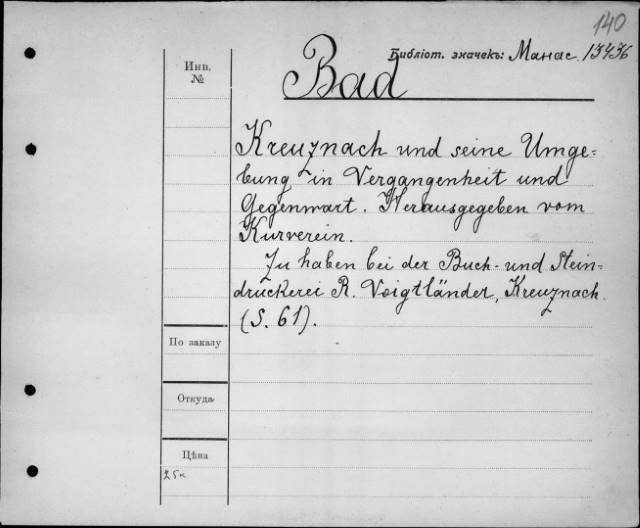 140
Библіот. значекъ: Манас. 13436
Инв.
№
Bad
Kreuznach und seine Umge=
bung in Vergangenheit und
Gegenwart. Herausgegeben vom
Kurverein.
Zu haben bei der Buch- und Stein=
druckerei R. Voigtländer, Kreuznach.
(S. 61).
По заказу
Откуда
Цѣна
25к